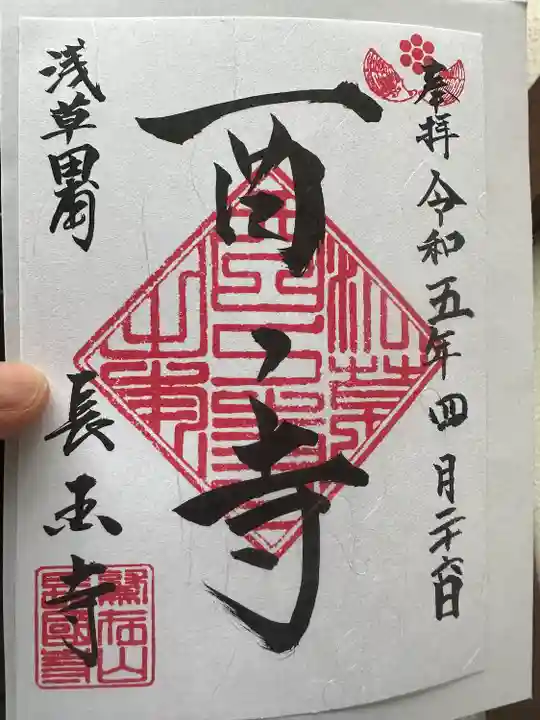 奉拝 令和五年四月二十六日
酉ノ寺
浅草田圃
長国寺
鷲在山
長國寺